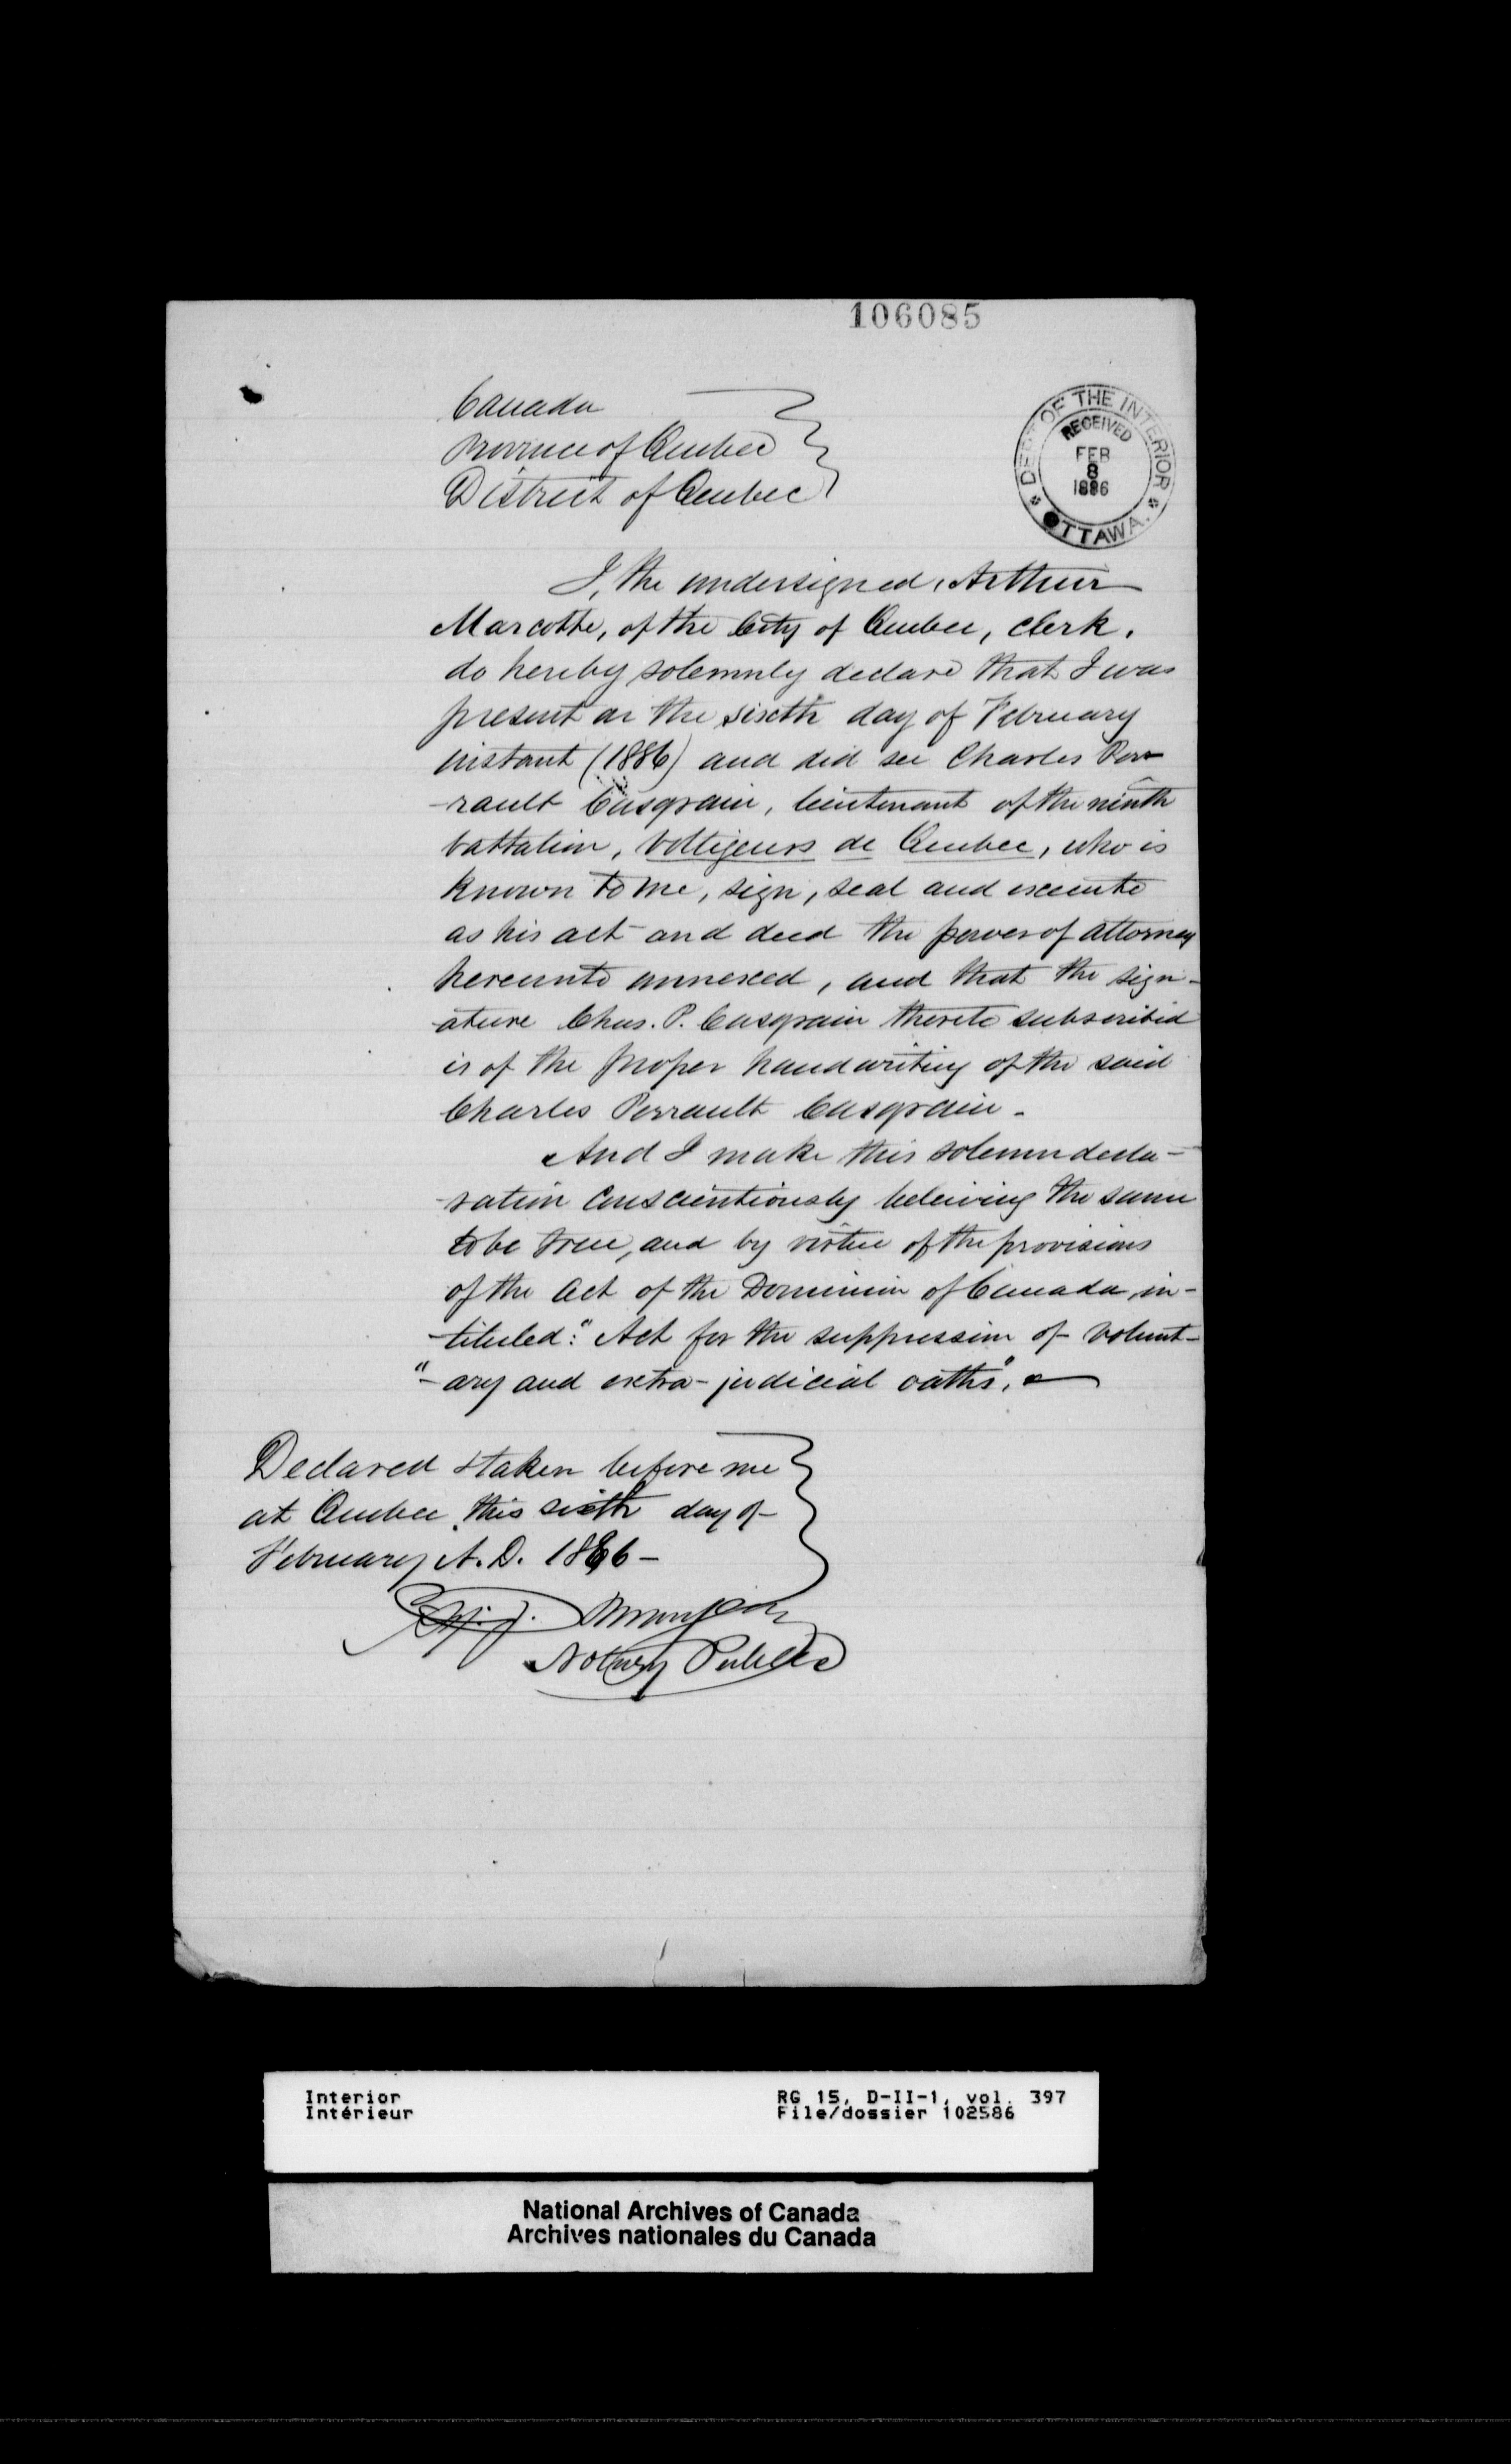 106085
Canada
Province of Quebec
District of Quebec
DEPT OF THE INTERIOR
RECEIVED
FEB
8
1886
OTTAWA.
I, the undersigned, Arthur
Marcotte, of the City of Quebec, clerk,
do hereby solemnly declare that I was
present on the sixth day of February
instant (1886) and did see Charles Per-
-rault Casgrain, lieutenant of the ninth
battalion, Voltigeurs de Quebec, who is
known to me, sign, seal and execute
as his act and deed the power of attorney
hereunto annexed, and that the sign-
-ature Chas. P. Casgrain thereto subscribed
is of the proper handwriting of the said
Charles Perrault Casgrain -
And I make this solemn decla-
-ration conscientiously beleiving the same
to be true, and by virtue of the provisions
of the Act of the Dominion of Canada, in-
-tituled: "Act for the suppression of volunt-
"-ary and extra-judicial oaths".
Declared & taken before me
at Quebec, this sixth day of
February A.D. 1886 -
Notary Public
Interior
Intérieur
RG 15, D-II-1, vol. 397
File/dossier 102586
National Archives of Canada
Archives nationales du Canada